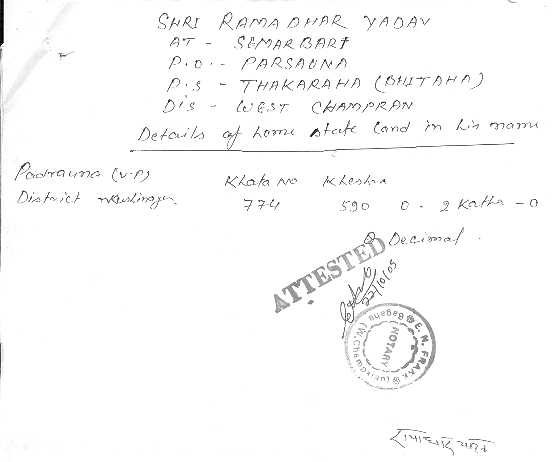 SHRI RAMADHAR YADAV
AT - SEMARBARI
P.O - PARSAUNA
P.S - THAKARAHA (BHITAHA)
DIS - WEST CHAMPRAN
Details of home state land in his name
Padrauna (U.P)
Khata No Kheshra
District Kushinagar
774 590 0 - 2 Katha - 0
Decimal.
ATTESTED
22/10/05
NOTARY
Bagaha
रामाधार यादव